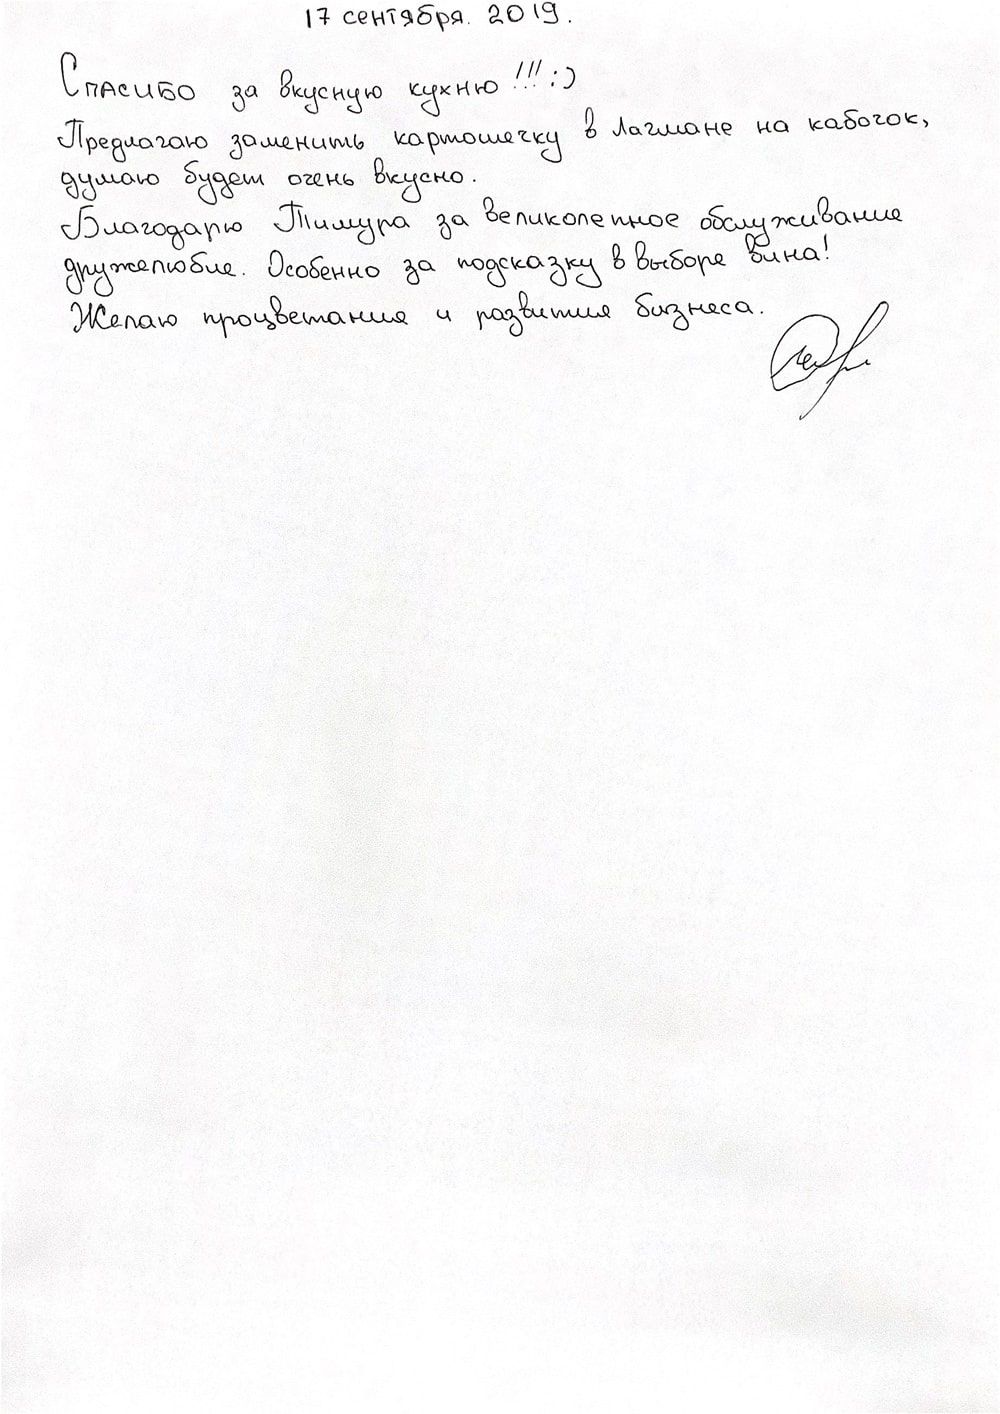 17 сентября. 2019.
Спасибо за вкусную кухню!!! :)
Предлагаю заменить картошечку в Лагмане на кабочок,
думаю будет очень вкусно.
Благодарю Тимура за великолепное обслуживание
дружелюбие. Особенно за подсказку в выборе вина!
Желаю процветания и развития бизнеса.